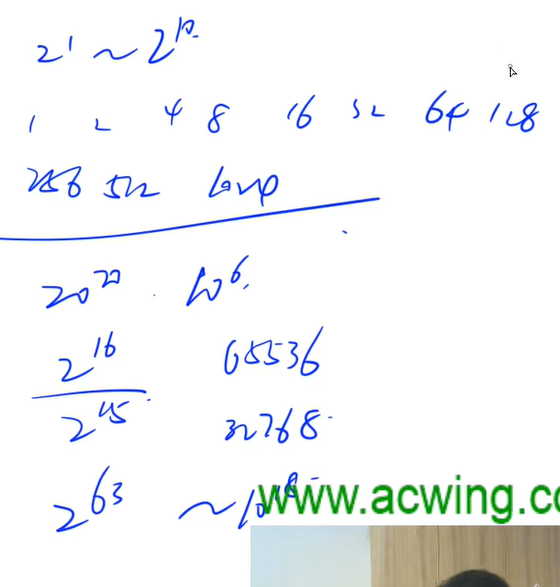 2^1 ~ 2^10
1 2 4 8 16 32 64 128
256 512 1024
20^20 10^6
2^16 65536
2^15 32768
2^63 ~10^18
www.acwing.co